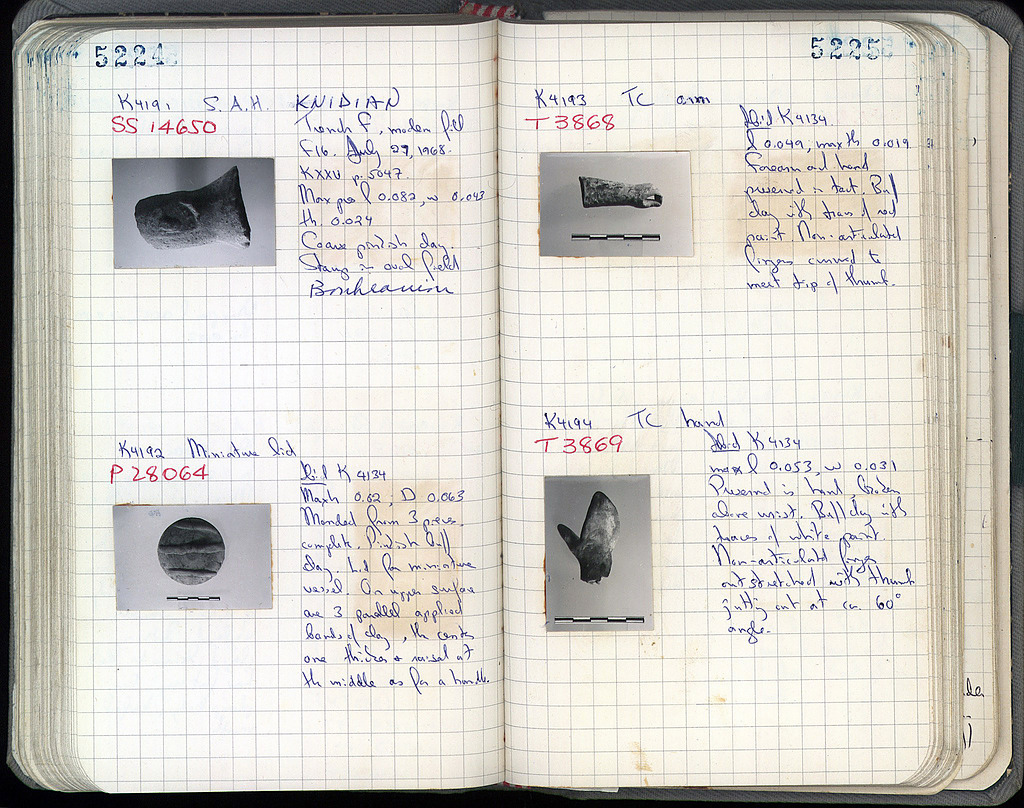 5224
K4191 S.A.H. KNIDIAN
SS 14650
Trench F, modern fill
F16. July 29, 1968.
KXXV p. 5047.
Max pres l 0.082, w 0.043
th. 0.024
Coarse pinkish clay.
Stamp in oval field
K4192 Miniature lid
P 28064
Ibid K 4134
Max h 0.02, D 0.063
Mended from 3 pieces,
complete. Pinkish buff
clay. Lid for miniature
vessel. On upper surface
are 3 parallel applied
bands of clay, the center
one thicker & raised at
the middle as for a handle.
5225
K4193 TC arm
T 3868
Ibid K4134
l 0.049, max th 0.019
Forearm and hand
preserved intact. Buff
clay with traces of red
paint. Non-articulated
fingers curved to
meet tip of thumb.
K4194 TC hand
T 3869
Ibid K 4134
max l 0.053, w 0.031
Preserved is hand, broken
above wrist. Buff clay with
traces of white paint.
Non-articulated fingers
outstretched with thumb
jutting out at ca 60°
angle.